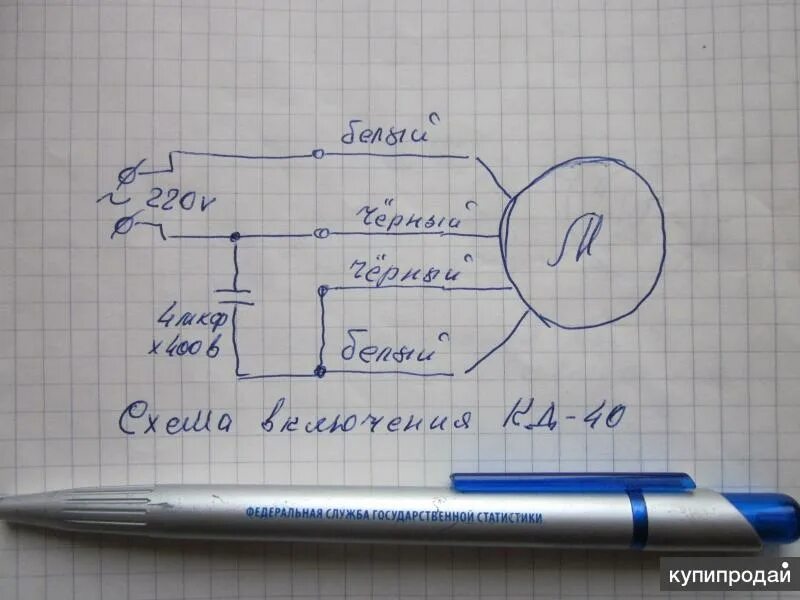 белый
~ 220v
чёрный
чёрный
4 мкф
х400в
белый
М
Схема включения КД-40
ФЕДЕРАЛЬНАЯ СЛУЖБА ГОСУДАРСТВЕННОЙ СТАТИСТИКИ
купипродай